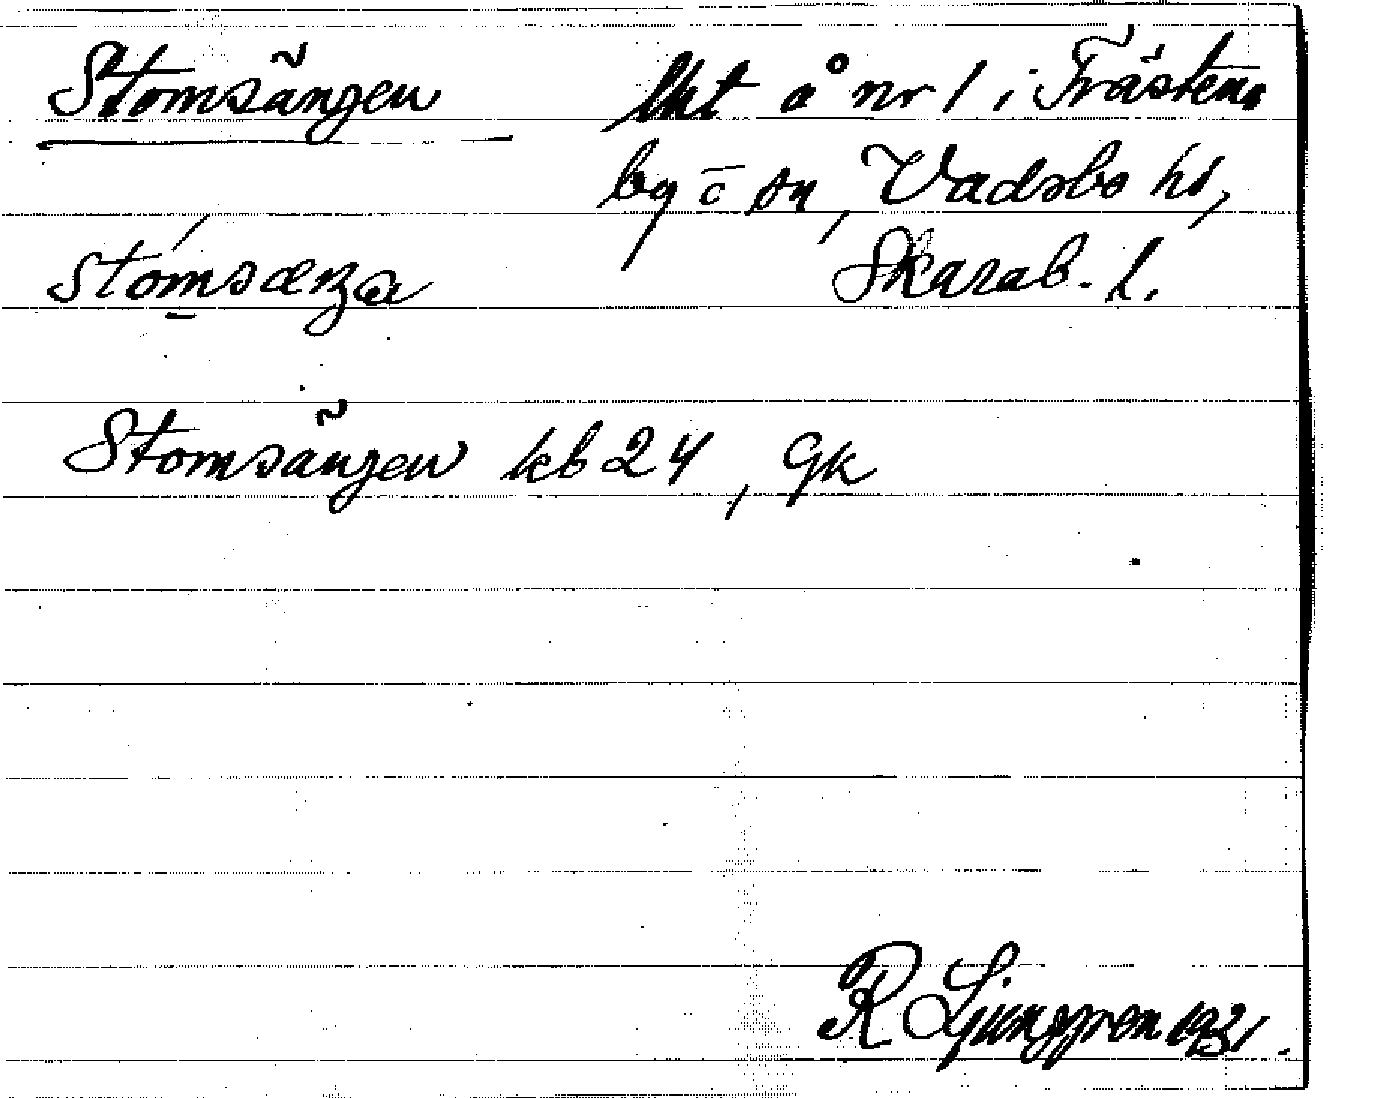 Stomsängen lht å nr 1 i Trästena
by o sn, Vadsbo hd,
Skarab. l.
Stomsängen kb 24, Gk
R Ljunggren 1931.